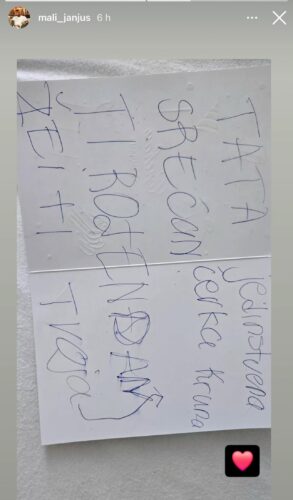 mali_janjus 6 h
TATA
SREĆAN
TI ROĐENDAN
ŽELI TI
TVOJA
jedinstvena
ćerka Kruna